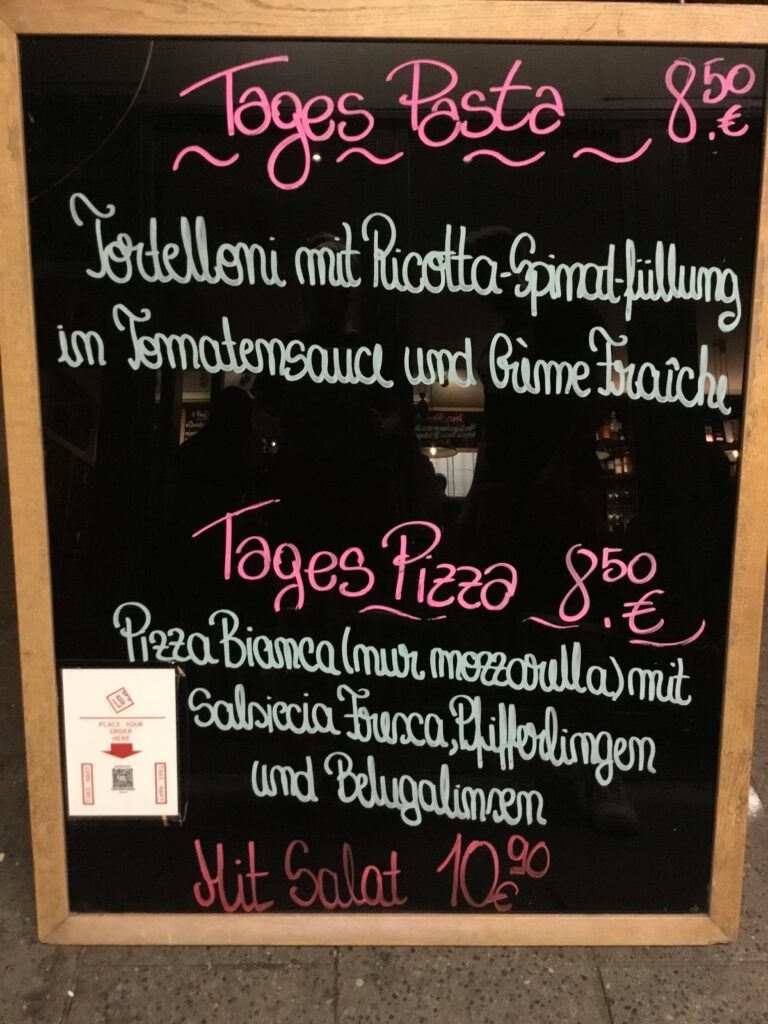 Tages Pasta 8.50 €
Tortelloni mit Ricotta-Spinat-füllung
in Tomatensauce und Crème Fraîche
Tages Pizza 8.50 €
Pizza Bianca (nur mozzarella) mit
Salsiccia Fresca, Pfifferlingen
und Belugalinsen
PLACE YOUR
ORDER
HERE
Mit Salat 10.90 €